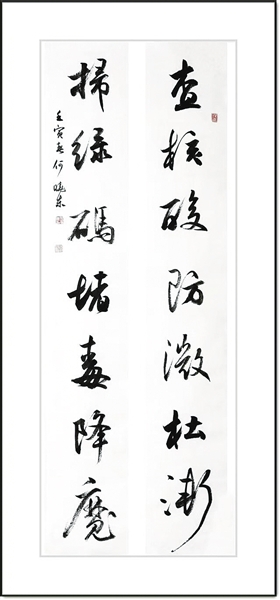 查核酸防微杜渐
掃绿碼堵毒降魔
壬寅春何曉东